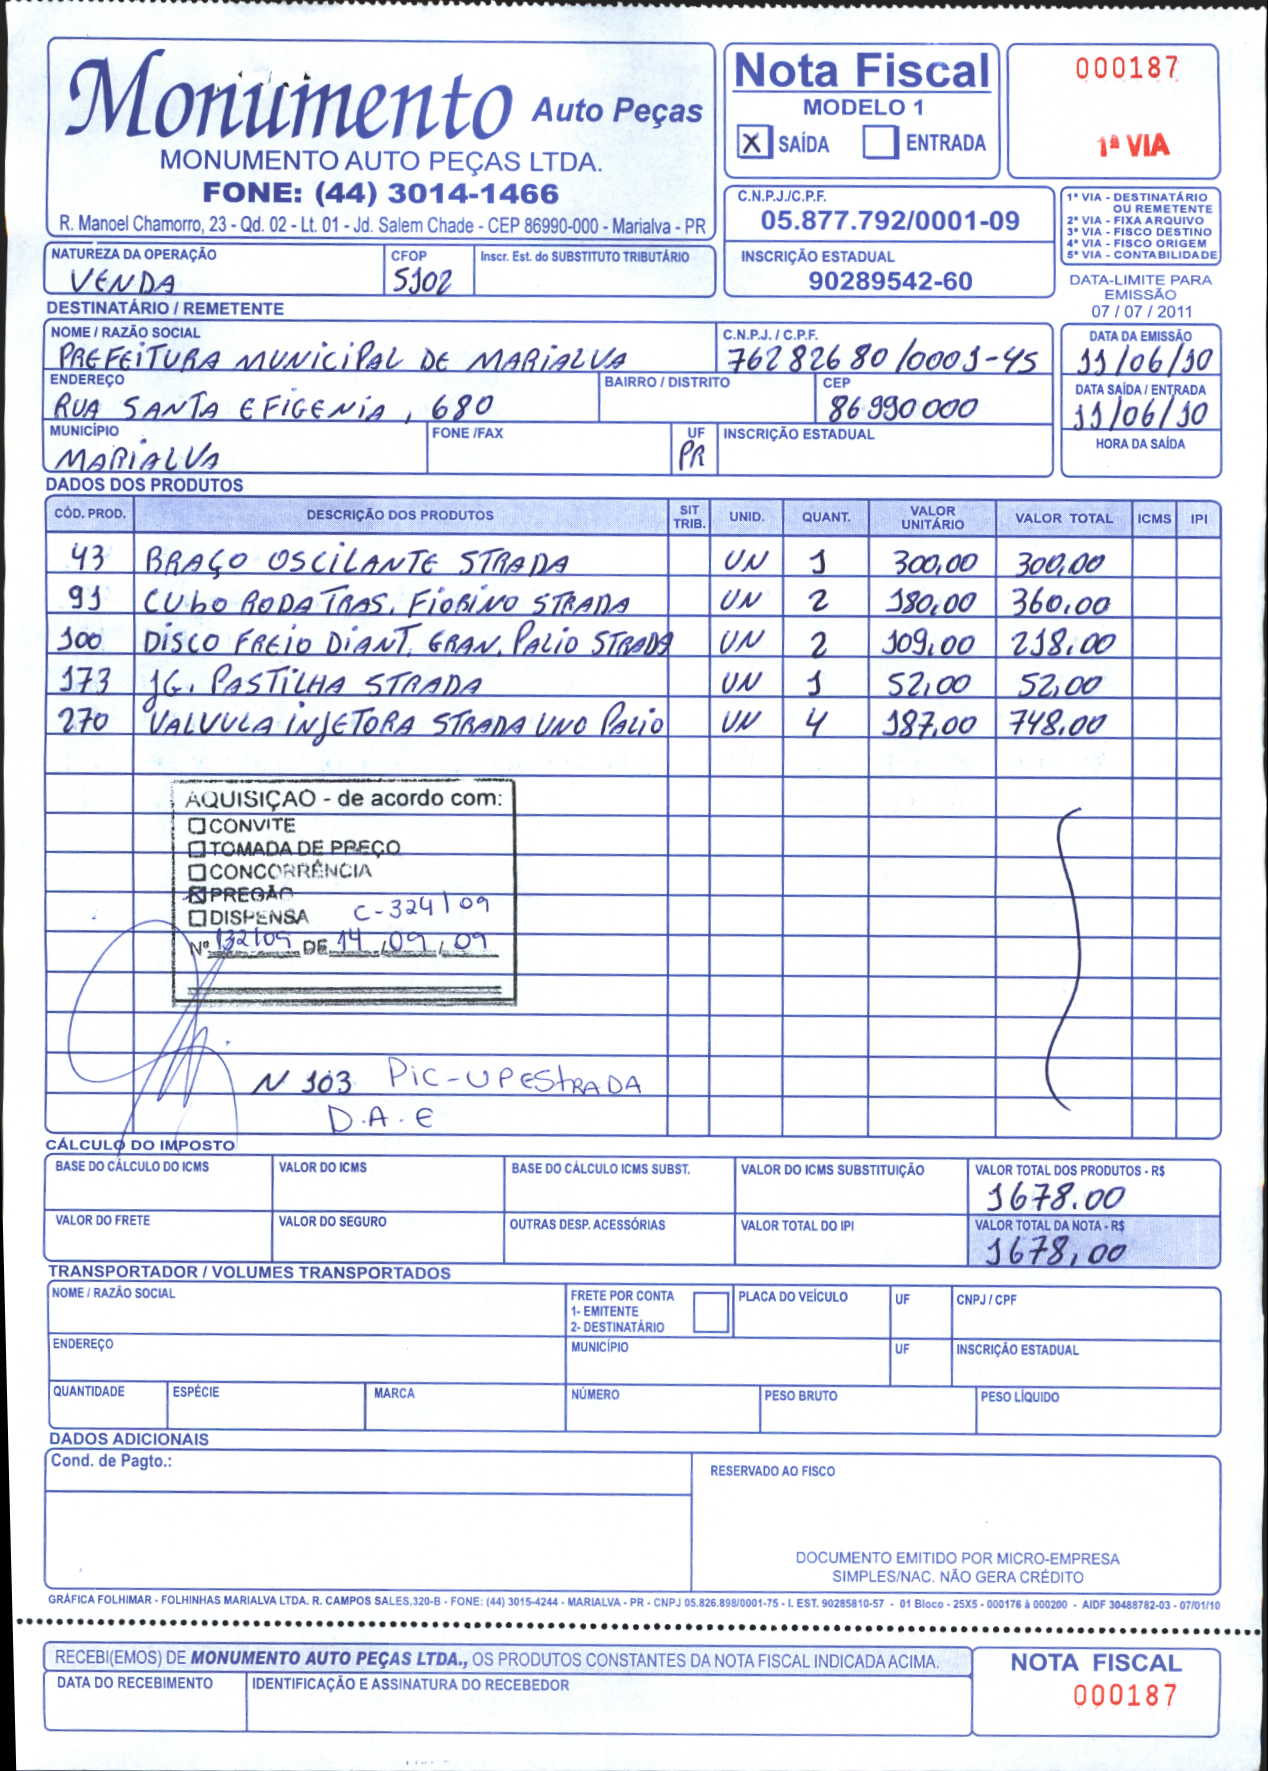 Monumento Auto Peças
MONUMENTO AUTO PEÇAS LTDA.
FONE: (44) 3014-1466
R. Manoel Chamorro, 23 - Qd. 02 - Lt. 01 - Jd. Salem Chade - CEP 86990-000 - Marialva - PR
Nota Fiscal
MODELO 1
X SAÍDA ENTRADA
000187
1ª VIA
C.N.P.J./C.P.F.
05.877.792/0001-09
INSCRIÇÃO ESTADUAL
90289542-60
1ª VIA - DESTINATÁRIO
OU REMETENTE
2ª VIA - FIXA ARQUIVO
3ª VIA - FISCO DESTINO
4ª VIA - FISCO ORIGEM
5ª VIA - CONTABILIDADE
DATA-LIMITE PARA
EMISSÃO
07 / 07 / 2011
NATUREZA DA OPERAÇÃO CFOP Inscr. Est. do SUBSTITUTO TRIBUTÁRIO
VENDA 5102
DESTINATÁRIO / REMETENTE
NOME / RAZÃO SOCIAL C.N.P.J. / C.P.F. DATA DA EMISSÃO
PREFEITURA MUNICIPAL DE MARIALVA 76282680/0001-45 11/06/10
ENDEREÇO BAIRRO / DISTRITO CEP DATA SAÍDA / ENTRADA
RUA SANTA EFIGENIA, 680 86990000 11/06/10
MUNICÍPIO FONE /FAX UF INSCRIÇÃO ESTADUAL HORA DA SAÍDA
MARIALVA PR
DADOS DOS PRODUTOS
CÓD. PROD. DESCRIÇÃO DOS PRODUTOS SIT TRIB. UNID. QUANT. VALOR UNITÁRIO VALOR TOTAL ICMS IPI
43 BRAÇO OSCILANTE STRADA UN 1 300,00 300,00
91 CUbO RODA TRAS. FIORINO STRADA UN 2 180,00 360,00
100 DISCO FREIO DIANT. GRAN. PALIO STRADA UN 2 109,00 218,00
173 JG. PASTILHA STRADA UN 1 52,00 52,00
270 VALVULA INJETORA STRADA UNO PALIO UN 4 187,00 748,00
AQUISIÇÃO - de acordo com:
CONVITE
TOMADA DE PREÇO
CONCORRÊNCIA
X PREGÃO
DISPENSA C-324/09
Nº 132/09 DE 14/09/09
N 103 PIC-UP ESTRADA
D.A.E
CÁLCULO DO IMPOSTO
BASE DO CÁLCULO DO ICMS VALOR DO ICMS BASE DO CÁLCULO ICMS SUBST. VALOR DO ICMS SUBSTITUIÇÃO VALOR TOTAL DOS PRODUTOS - R$
1678.00
VALOR DO FRETE VALOR DO SEGURO OUTRAS DESP. ACESSÓRIAS VALOR TOTAL DO IPI VALOR TOTAL DA NOTA - R$
1678,00
TRANSPORTADOR / VOLUMES TRANSPORTADOS
NOME / RAZÃO SOCIAL FRETE POR CONTA PLACA DO VEÍCULO UF CNPJ / CPF
1- EMITENTE
2- DESTINATÁRIO
ENDEREÇO MUNICÍPIO UF INSCRIÇÃO ESTADUAL
QUANTIDADE ESPÉCIE MARCA NÚMERO PESO BRUTO PESO LÍQUIDO
DADOS ADICIONAIS
Cond. de Pagto.:
RESERVADO AO FISCO
DOCUMENTO EMITIDO POR MICRO-EMPRESA
SIMPLES/NAC. NÃO GERA CRÉDITO
GRÁFICA FOLHIMAR - FOLHINHAS MARIALVA LTDA. R. CAMPOS SALES,320-B - FONE: (44) 3015-4244 - MARIALVA - PR - CNPJ 05.826.898/0001-75 - I. EST. 90285810-57 - 01 Bloco - 25X5 - 000176 à 000200 - AIDF 30488782-03 - 07/01/10
RECEBI(EMOS) DE MONUMENTO AUTO PEÇAS LTDA., OS PRODUTOS CONSTANTES DA NOTA FISCAL INDICADA ACIMA.
DATA DO RECEBIMENTO IDENTIFICAÇÃO E ASSINATURA DO RECEBEDOR
NOTA FISCAL
000187